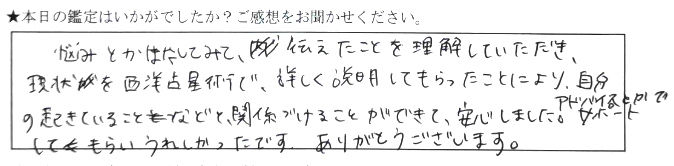 ★本日の鑑定はいかがでしたか?ご感想をお聞かせください。
悩みとかはなしてみて、伝えたことを理解していただき、
現状を西洋占星術で、詳しく説明してもらったことにより、自分
の起きていることなどと、関係づけることができて、安心しました。アドバイスとかで
サポートしてもらいうれしかったです。ありがとうございます。